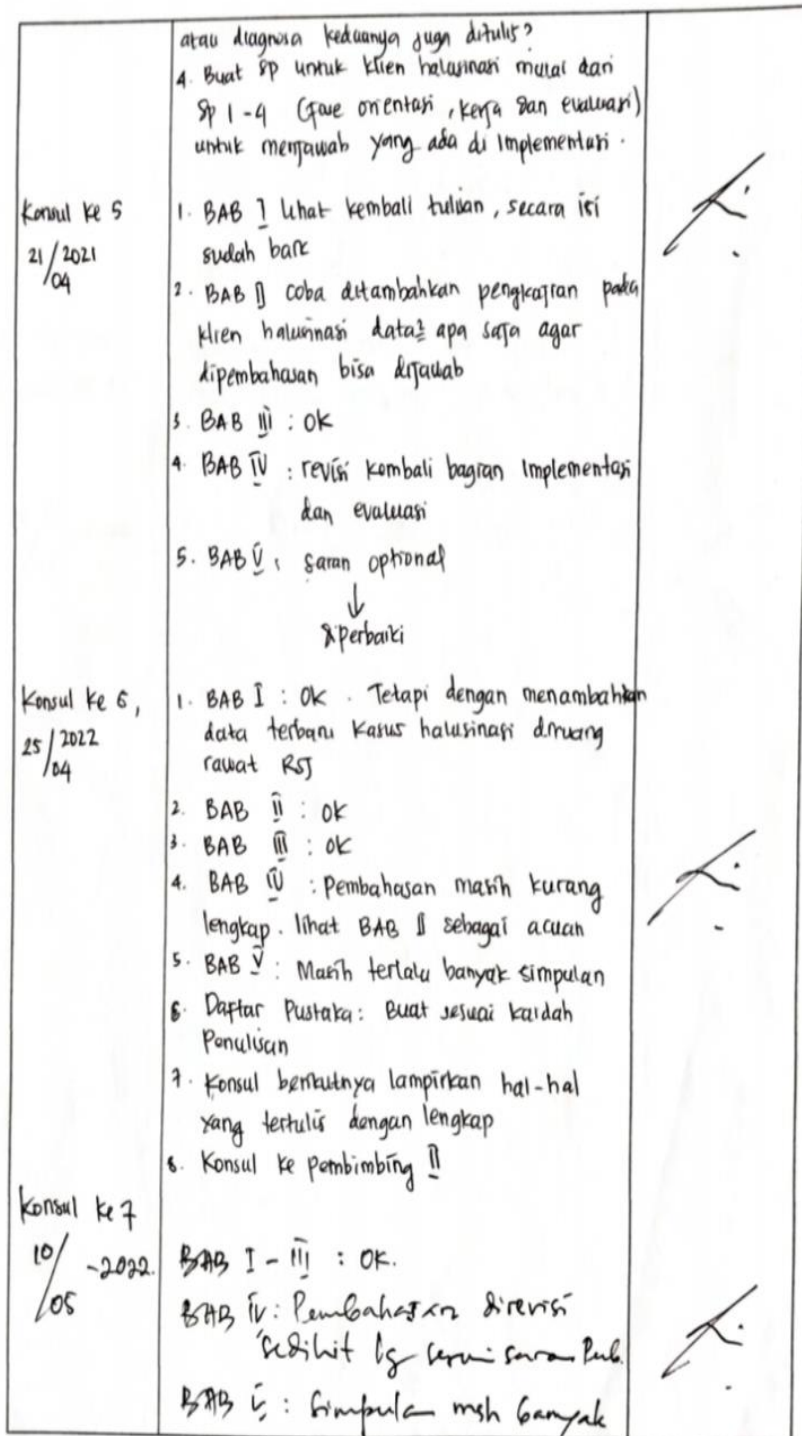 atau diagnosa keduanya juga ditulis?
4. Buat SP untuk klien halusinasi mulai dari
SP 1-4 (Fase orientasi, kerja dan evaluasi)
untuk menjawab yang ada di Implementasi.
Konsul ke 5
21/04 2021
1. BAB I lihat kembali tulisan, secara isi
sudah baik
2. BAB II coba ditambahkan pengkajian pada
klien halusinasi data2 apa saja agar
dipembahasan bisa dijawab
3. BAB III : OK
4. BAB IV : revisi kembali bagian Implementasi
dan evaluasi
5. BAB V : saran optional
↓
diperbaiki
Konsul ke 6,
25/04 2022
1. BAB I : OK. Tetapi dengan menambahkan
data terbaru kasus halusinasi diruang
rawat RSJ
2. BAB II : OK
3. BAB III : OK
4. BAB IV : Pembahasan masih kurang
lengkap. lihat BAB II sebagai acuan
5. BAB V : Masih terlalu banyak simpulan
6. Daftar Pustaka: Buat sesuai kaidah
Penulisan
7. Konsul berikutnya lampirkan hal-hal
yang tertulis dengan lengkap
8. Konsul ke pembimbing II
Konsul ke 7
10/05 -2022.
BAB I - III : OK.
BAB IV : Pembahasan direvisi
sedikit lg sesuai saran
BAB V : Simpula msh banyak